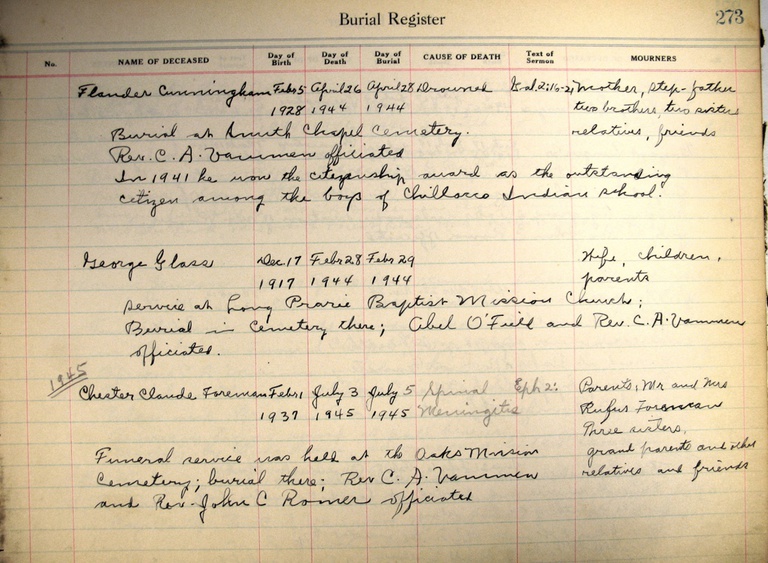 Burial Register
273
No.
NAME OF DECEASED
Day of Birth
Day of Death
Day of Burial
CAUSE OF DEATH
Text of Sermon
MOURNERS
Flander Cunningham Feb 5 April 26 April 28 Drowned Gal. 2:16-21 Mother, step-father
1928 1944 1944 two brothers, two sisters
Burial at Smith Chapel Cemetery. relatives, friends
Rev. C. A. Vammen officiated
In 1941 he won the citizenship award as the outstanding
citizen among the boys of Chillocco Indian School.
George Glass Dec. 17 Febr 28 Febr 29 Wife, children,
1917 1944 1944 parents
Service at Long Prarie Baptist Mission Church;
Burial in Cemetery there; Abel O'Field and Rev. C. A. Vammen
officiated.
1945
Chester Claude Foreman Febr. 1 July 3 July 5 Spinal Eph 2: Parents, Mr and Mrs
1937 1945 1945 Meningitis Rufus Foreman
Three sisters,
Funeral service was held at the Oaks Mission grand parents and other
Cemetery; burial there; Rev C. A. Vammen relatives and friends
and Rev. John C Romer officiated